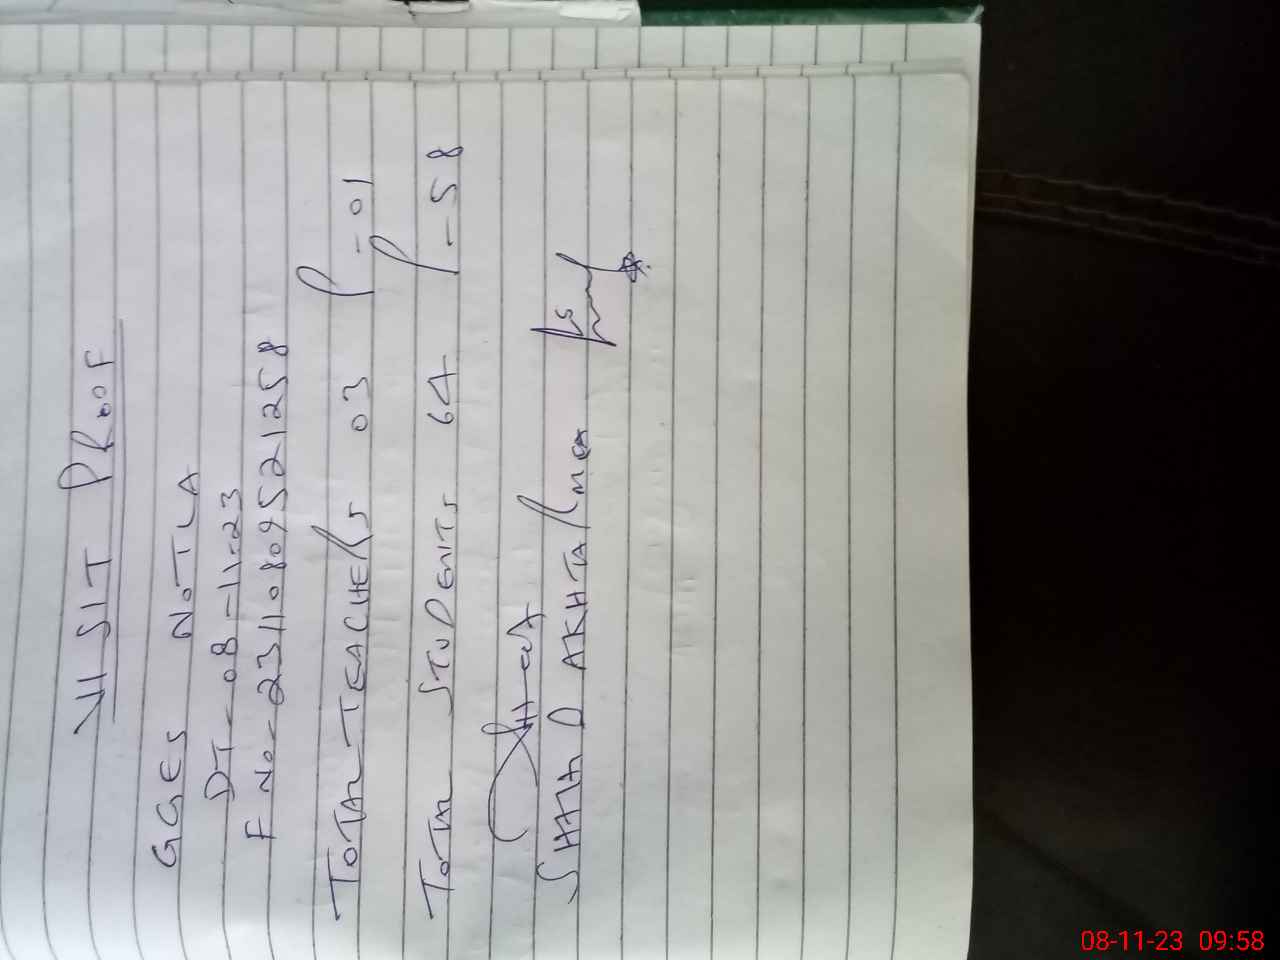 VISIT PROOF
GGES NOTLA
DT-08-11-23
F No-23110809521258
TOTAL TEACHERS 03 P-01
TOTAL STUDENTS 64 P-58
SHAH D AKHTAR
08-11-23 09:58